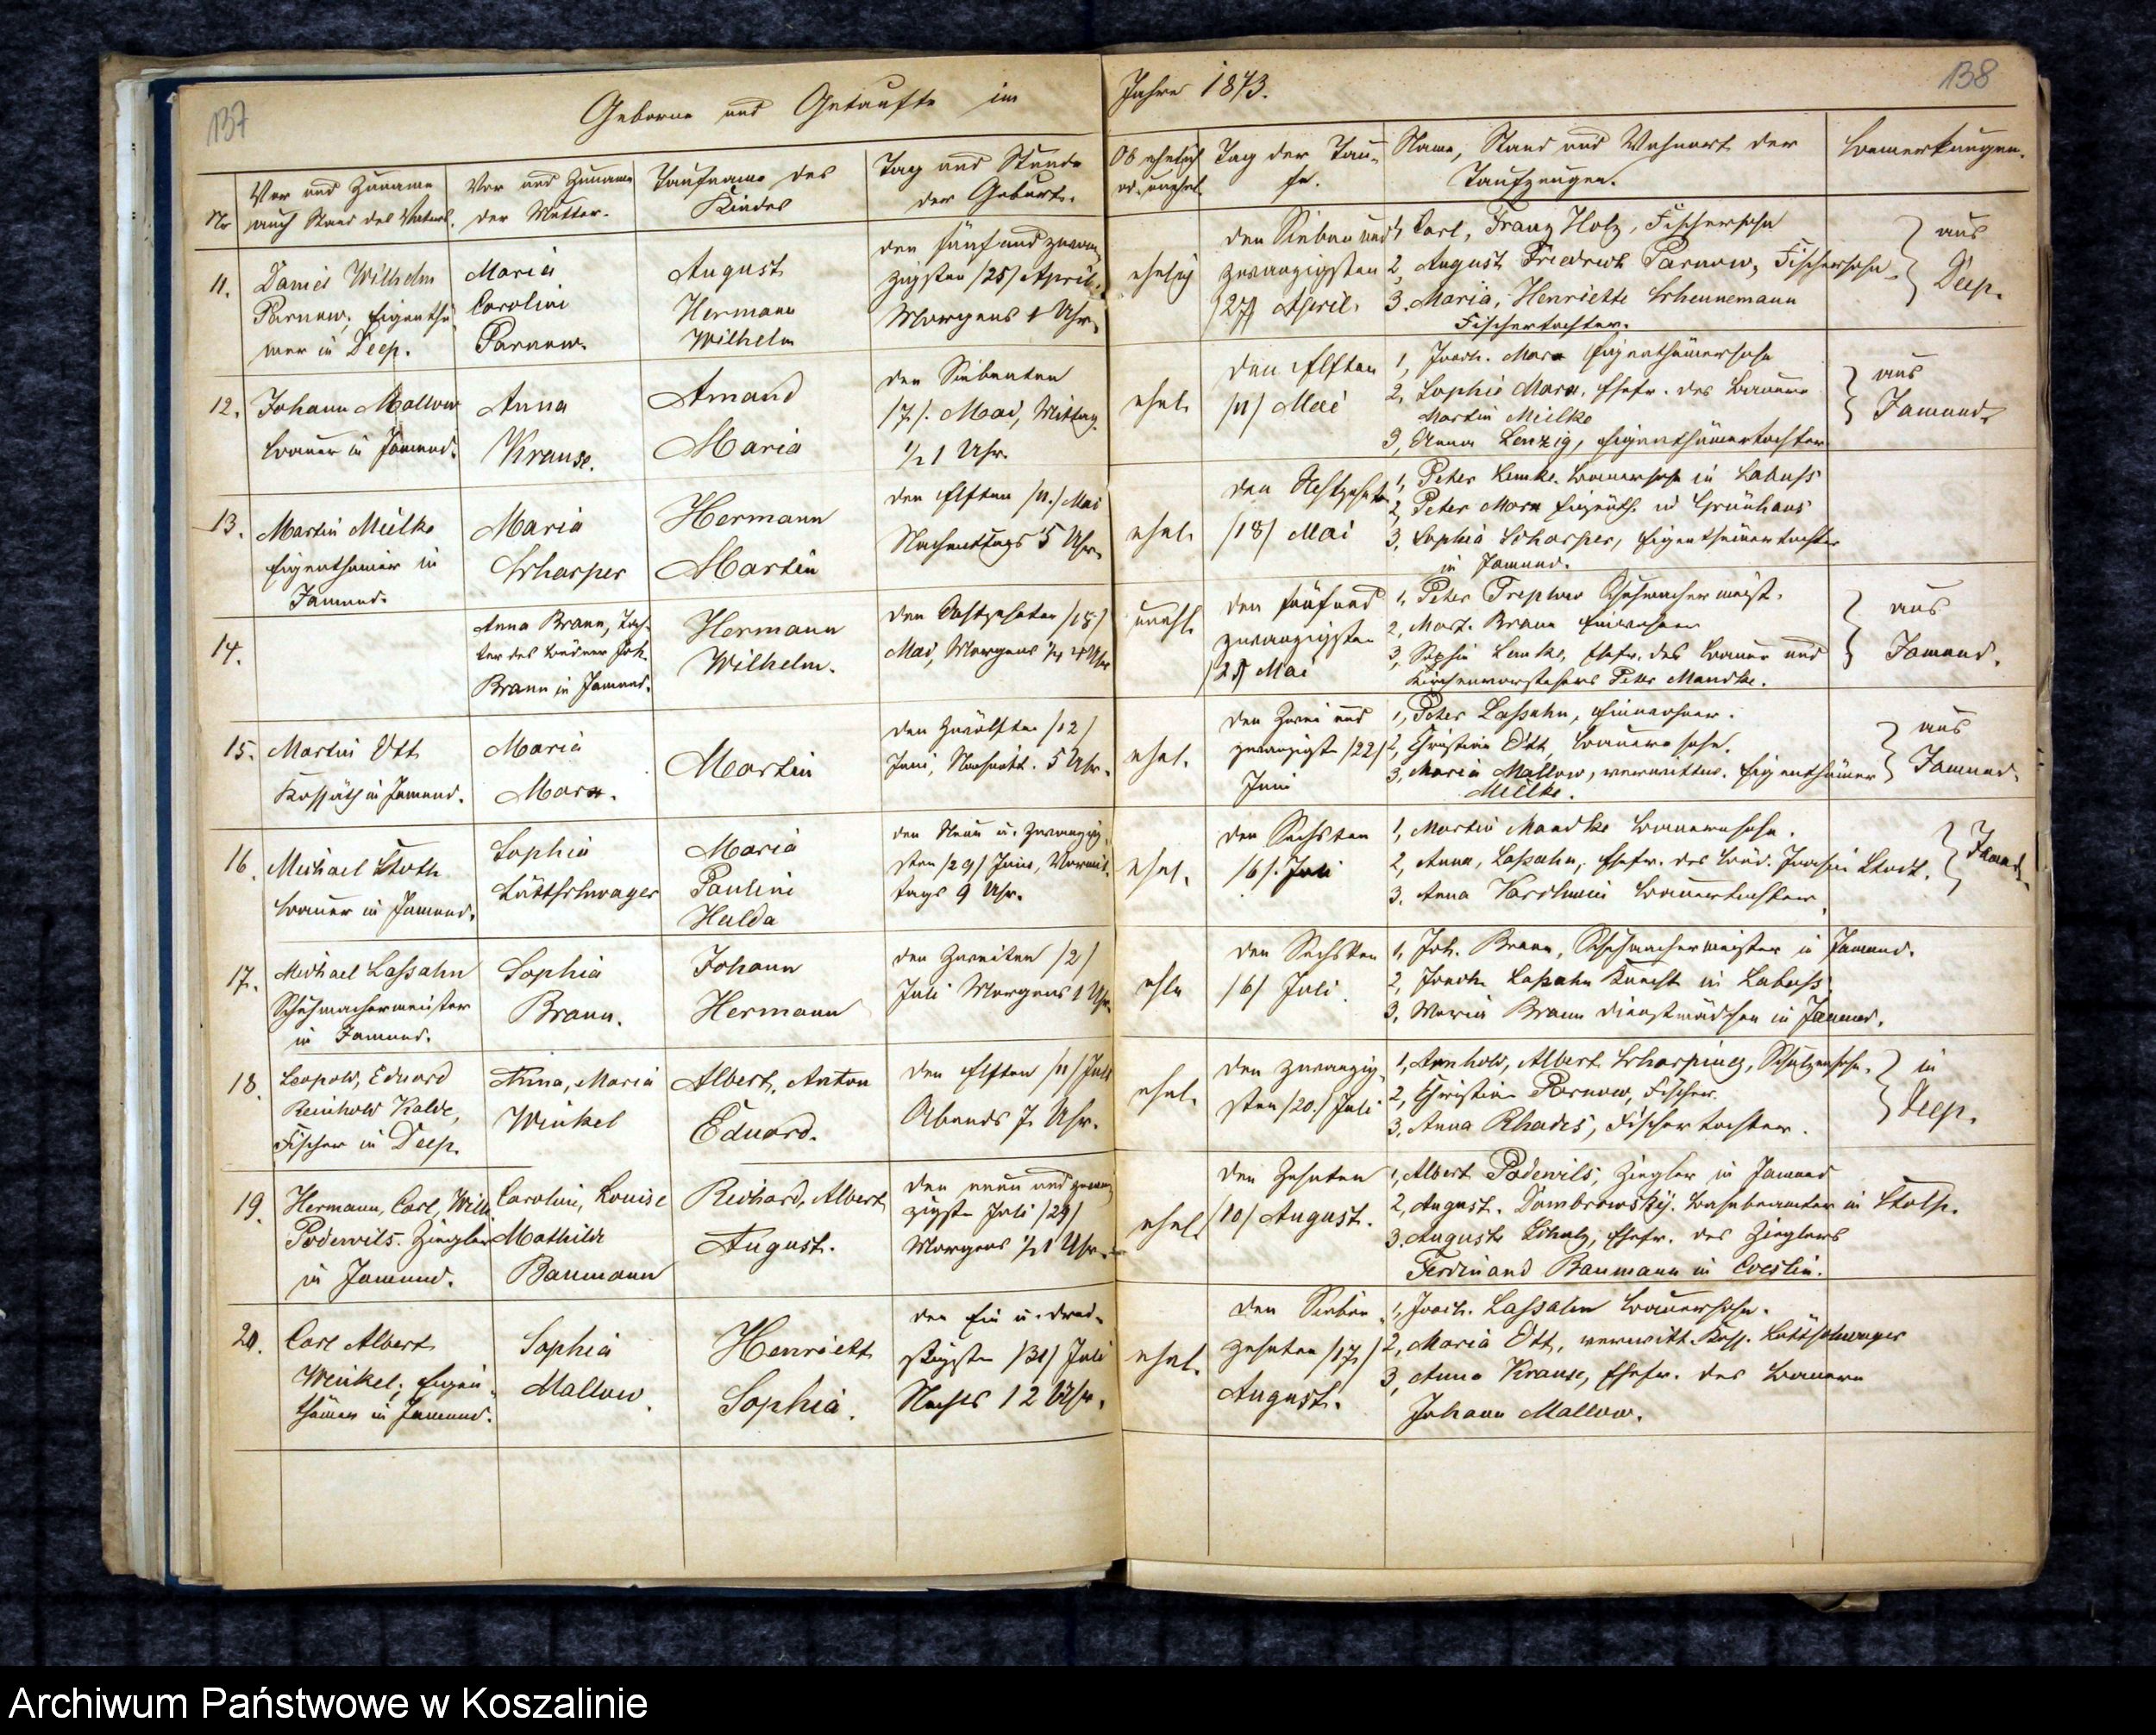 137
138
Geborne und Getaufte im Jahre 1873.
Nr
Vor und Zuname
auch Stand des Vaters.
Vor und Zuname
der Mutter.
Taufname des
Kindes
Tag und Stunde
der Geburt.
Ob ehelich
od. unehel.
Tag der Tau-
fe.
Name, Stand und Wohnort der
Taufzeugen.
Bemerkungen.
11.
Daniel Wilhelm
Parnow, Eigenthü-
mer in Deep.
Maria
Caroline
Parnow.
August
Hermann
Wilhelm
den fünf und zwan-
zigsten /25/ April,
Morgens 1 Uhr.
ehelich
den Sieben und
zwanzigsten
/27/ April.
1, Carl, Franz Holz, Fischersohn
2, August Friedrich Parnow, Fischersohn
3. Maria, Henriette Scheunemann
Fischertochter.
aus
Deep.
12.
Johann Mallow
Bauer in Jamund.
Anna
Krause.
Amand
Maria
den Siebenten
/7/. Mai, Mittag
1/2 1 Uhr.
ehel.
den elften
/11/ Mai
1, Joach. Marx Eigenthümersohn
2, Sophie Marx, Ehefr. des Bauern
Martin Mielke
3, Anna Lenzig, Eigenthümertochter
aus
Jamund.
13.
Martin Mielke
Eigenthümer in
Jamund.
Maria
Scharper
Hermann
Martin
den elften /11./ Mai
Nachmittags 5 Uhr.
ehel.
den Achtzehnten
/18/ Mai
1, Peter Lemke Bauersohn in Labuss
2, Peter Marx Eigenth. in Grünhaus
3, Sophia Scharper, Eigenthümertochter
in Jamund.
14.
Anna Braun, Toch-
ter des Büdner Joh.
Braun in Jamund.
Hermann
Wilhelm.
den Achtzehnten /18/
Mai, Morgens 1/4 4 Uhr
unehl.
den fünf und
zwanzigsten
/25/ Mai
1, Peter Treptow Schuhmachermeist.
2, Mart. Braun Einwohner
3, Sophie Lemke, Ehefr. des Bauer und
Kirchenvorstehers Peter Mandke.
aus
Jamund.
15.
Martin Ott
Kossäth in Jamund.
Maria
Marx.
Martin
den Zwölften /12/
Juni, Nachmitt. 5 Uhr.
ehel.
den Zwei und
zwanzigst. /22/
Juni
1, Peter Lassahn, Einwohner.
2, Christian Ott, Bauersohn.
3, Maria Mallow, verwittw. Eigenthümer
Mielke.
aus
Jamund.
16.
Michael Stoth
Bauer in Jamund.
Sophia
Lüttschwager
Maria
Pauline
Hulda
den Neun u. zwanzig-
sten /29/ Juni, Vormit-
tags 9 Uhr.
ehel.
den Sechsten
/6/. Juli
1, Martin Mandke Bauernsohn.
2, Anna, Lassahn, Ehefr. des Büd. Joachim Stodt.
3, Anna Bauertochter.
Jamund.
17.
Michael Lassahn
Schuhmachermeister
in Jamund.
Sophia
Braun.
Johann
Hermann
den Zweiten /2/
Juli Morgens 1 Uhr.
ehln
den Sechsten
/6/ Juli.
1, Joh. Braun, Schuhmachermeister in Jamund.
2, Joach. Lassahn Knecht in Labuss.
3, Maria Braun Dienstmädchen in Jamund.
18.
Leopold, Eduard
Reinhold Kalde,
Fischer in Deep.
Anna, Maria
Winkel
Albert, Anton
Eduard.
den elften /11/ Juli
Abends 7 Uhr.
ehel.
den zwanzig-
sten /20./ Juli
1, Arnhold, Albert Scharping, Schulzensohn.
2, Christian Parnow, Fischer.
3. Anna Rhades, Fischertochter.
in
Deep.
19.
Hermann, Carl, Wilh.
Podewils. Ziegler
in Jamund.
Caroline, Louise
Mathilde
Baumann
Richard, Albert
August.
den neun und zwan-
zigste Juli /29/
Morgens 1/2 1 Uhr.
ehel.
den Zehnten
/10/ August.
1, Albert Podewils, Ziegler in Jamund
2, August. Dombrowsky. Bahnbeamter in Stolp.
3. Auguste Schulz, Ehefr. des Zieglers
Ferdinand Baumann in Coeslin.
20.
Carl Albert
Winkel, Eigen-
thümer in Jamund.
Sophia
Mallow.
Henriette
Sophia.
den Ein u. drei-
ssigste /31/ Juli
Nachts 12 Uhr.
ehel.
den Sieben-
zehnten /17/
August.
1, Joach. Lassahn Bauersohn.
2, Maria Ott, verwitt. Koss. Lüttschwager
3, Anna Krause, Ehefr. des Bauern
Johann Mallow.
Archiwum Państwowe w Koszalinie